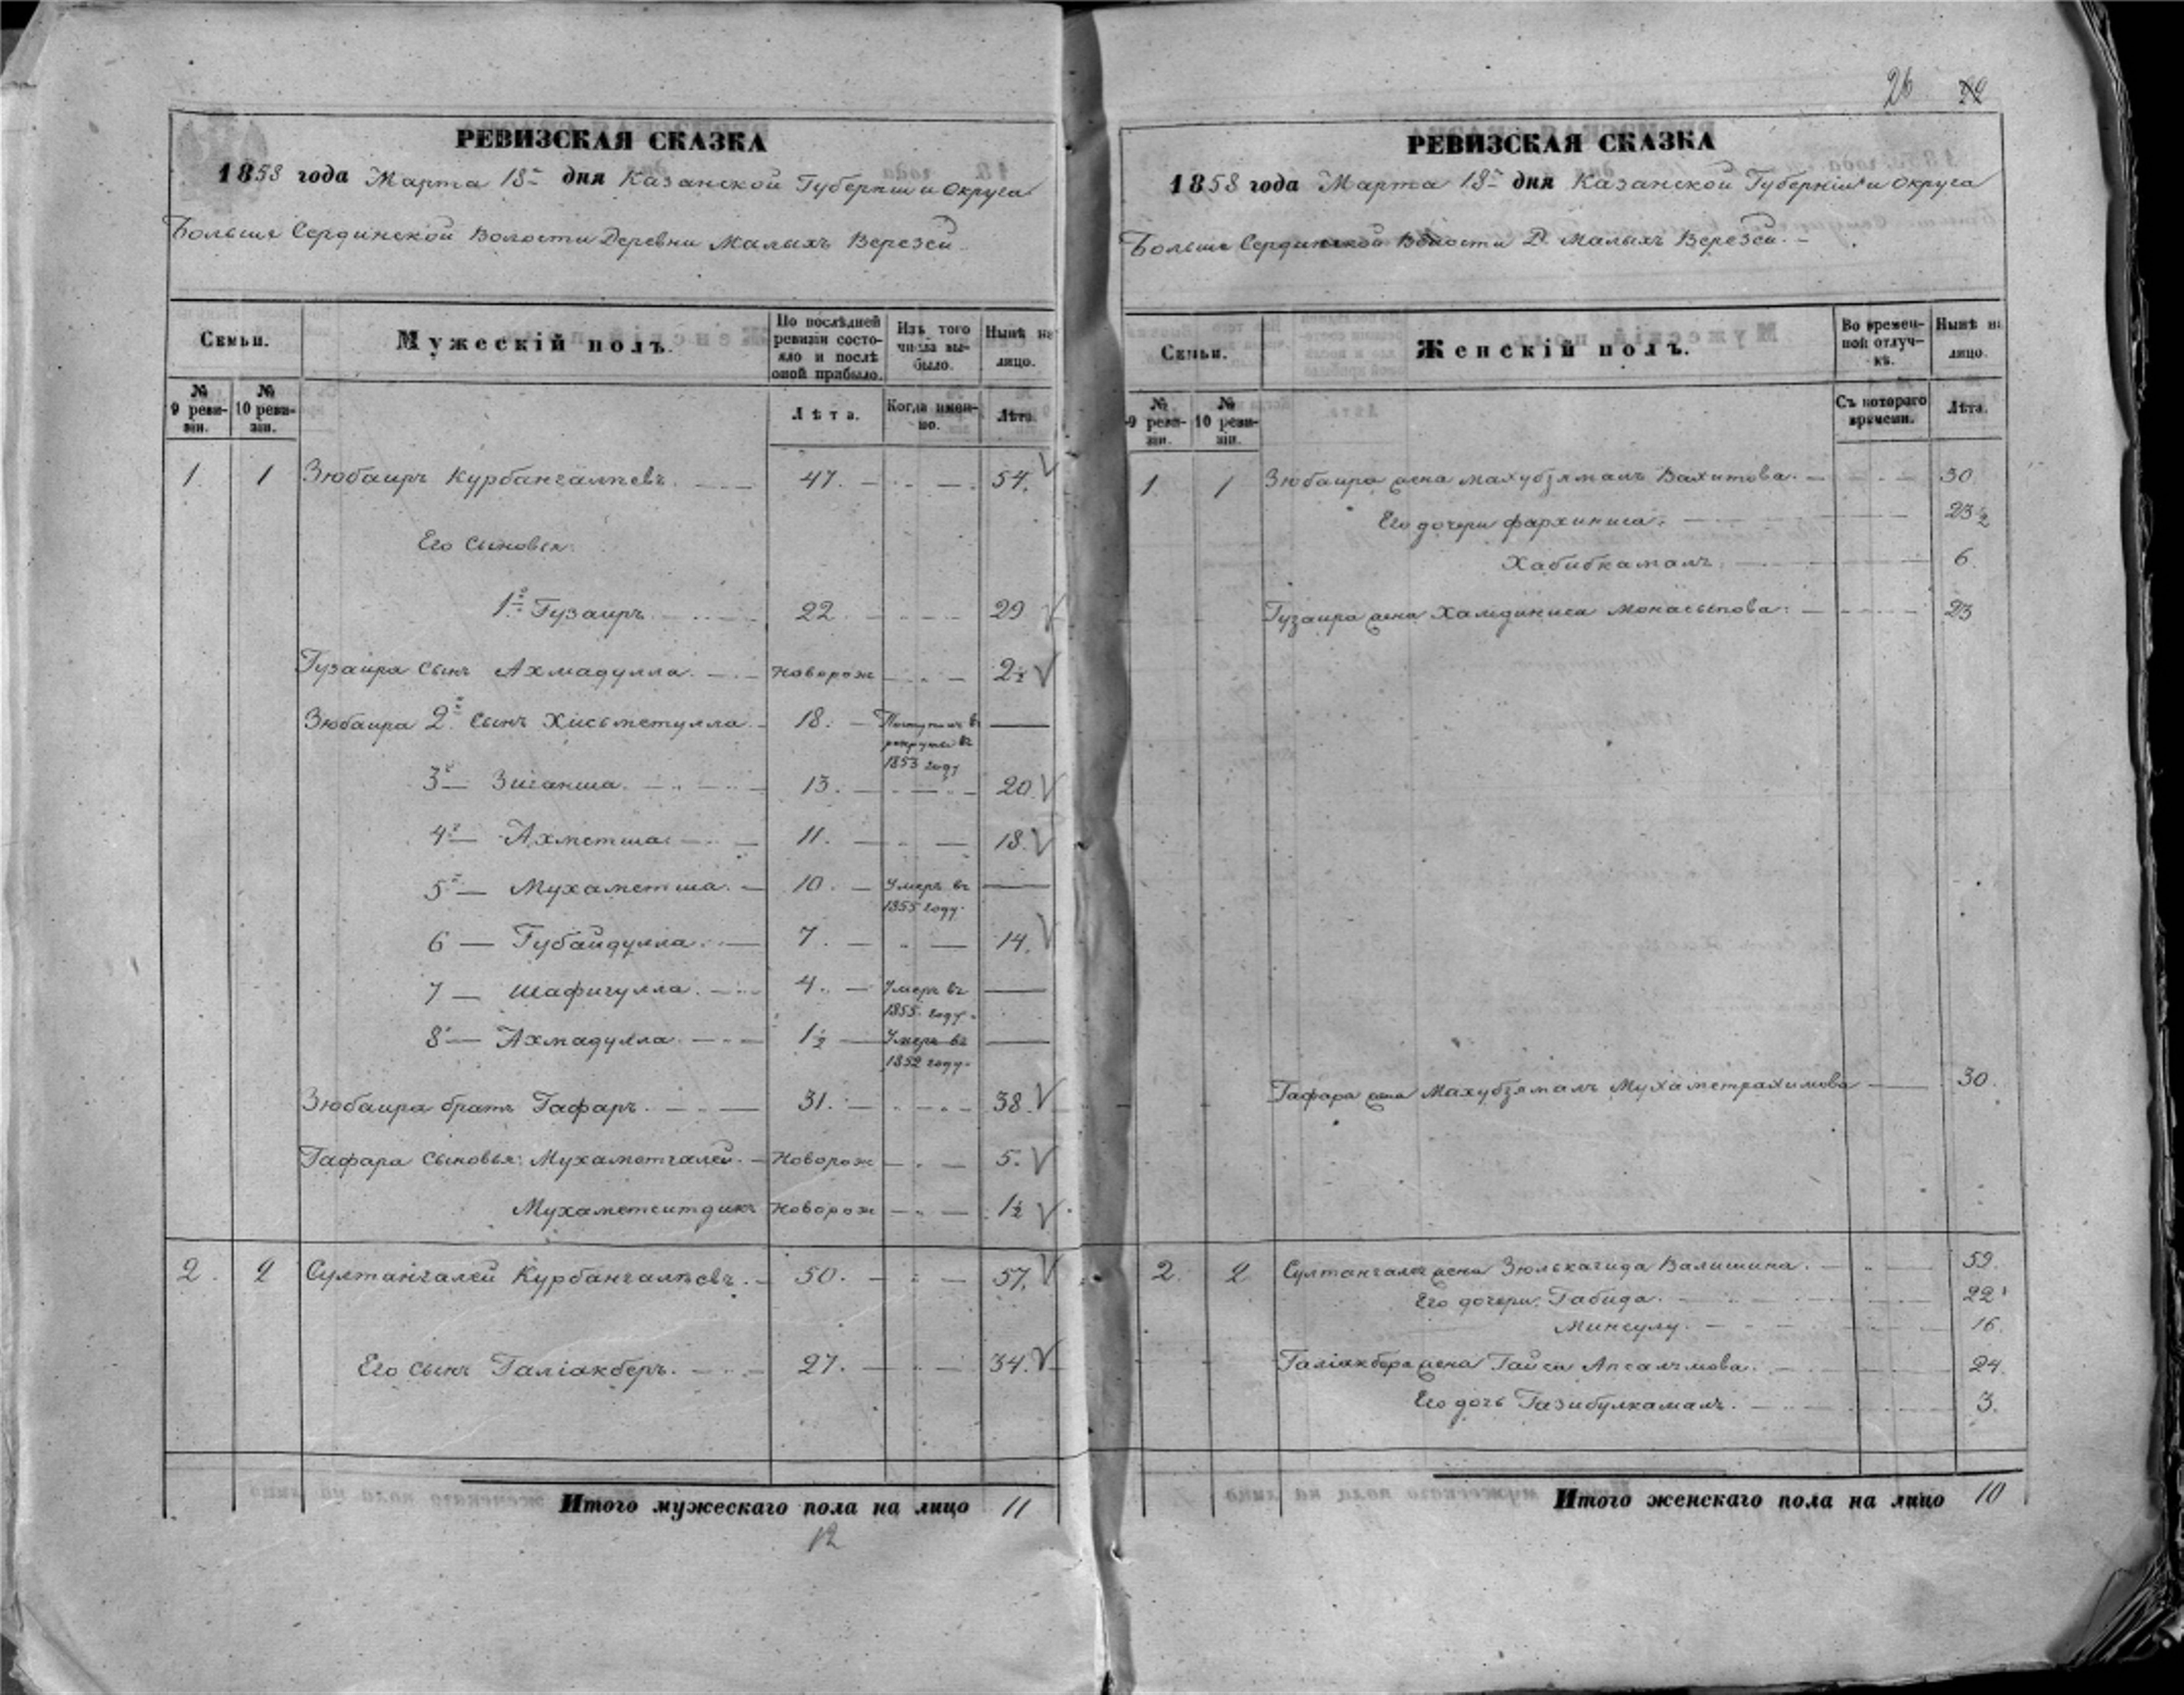 26 22
РЕВИЗСКАЯ СКАЗКА
1858 года Марта 18 дня Казанской Губернии и Округа
Больше Сердинской Волости Деревни Малыхъ Верезей
Семьи. Мужескій полъ. По послѣдней ревизіи состояло и послѣ оной прибыло. Изъ того числа выбыло. Нынѣ на лицо.
№ 9 ревизіи. № 10 ревизіи. Лѣта. Когда именно. Лѣта.
1. 1 Зюбаиръ Курбангалѣевъ. 47. 54.
Его сыновья:
1й Гузаиръ 22. 29
Гузаира сынъ Ахмадулла. Новорож 2½
Зюбаира 2й сынъ Хисьметулла 18. Поступилъ въ рекруты въ 1853 году
3й Зиганша. 13. 20.
4й Ахметша 11. 18.
5й Мухаметша. 10. Умеръ въ 1855 году.
6 Губайдулла 7. 14.
7 Шафигулла. 4. Умеръ въ 1855 году.
8 Ахмадулла 1½ Умеръ въ 1852 году.
Зюбаира братъ Гафаръ. 31. 38.
Гафара сыновья: Мухаметгалей. Новорож 5.
Мухаметситдикъ Новорож 1½
2. 2 Султангалей Курбангалѣевъ. 50. 57.
Его сынъ Галіакберъ. 27. 34.
Итого мужескаго пола на лицо 11
12
РЕВИЗСКАЯ СКАЗКА
1858 года Марта 18 дня Казанской Губерніи и Округа
Больше Сердинской Волости Д. Малыхъ Верезей.
Семьи. Женскій полъ. Во временной отлучкѣ. Нынѣ на лицо.
№ 9 ревизіи. № 10 ревизіи. Съ котораго времени. Лѣта.
1 1 Зюбаира жена Махубзямалъ Вахитова. 30.
Его дочери Фархиниса. 23½
Хабибкамалъ. 6.
Гузаира жена Халидиниса Монасыпова. 23
Гафара жена Махубзямалъ Мухаметрахимова 30.
2. 2 Султангалея жена Зюлькагида Валишина. 59.
Его дочери: Габида. 22
Минсулу. 16.
Галіакбера жена Гайси Апсалямова. 24.
Его дочь Газибулкамалъ. 3.
Итого женскаго пола на лицо 10